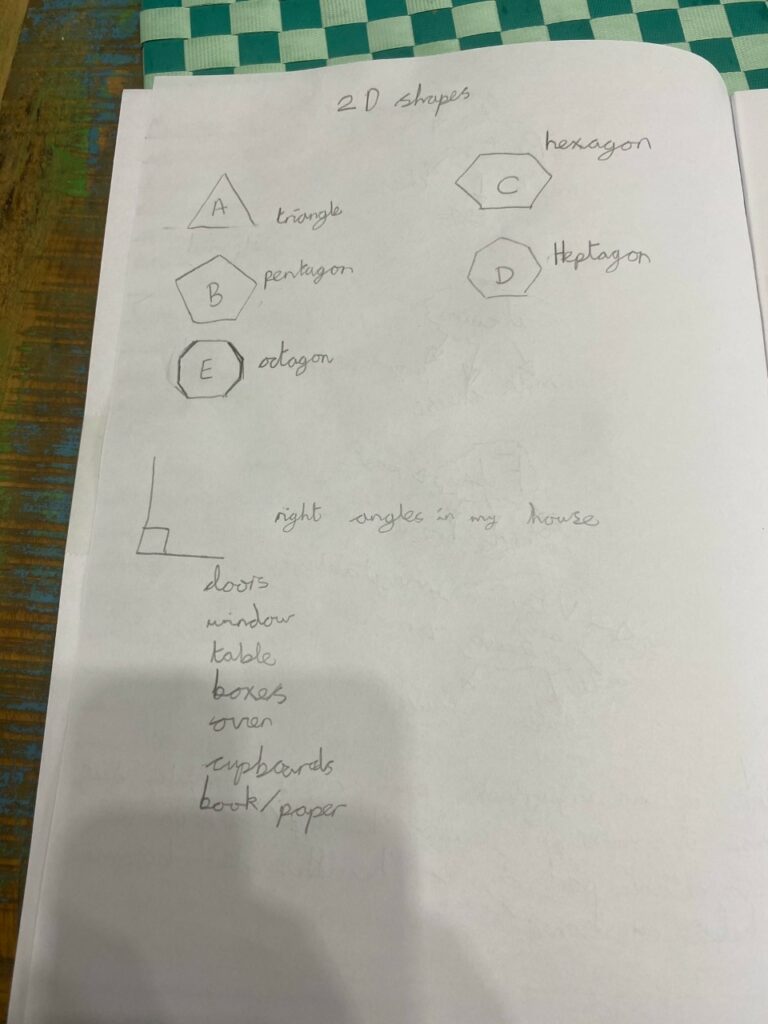 2D shapes
A triangle
B pentagon
E octagon
C hexagon
D Heptagon
right angles in my house
doors
window
table
boxes
oven
cupboards
book/paper